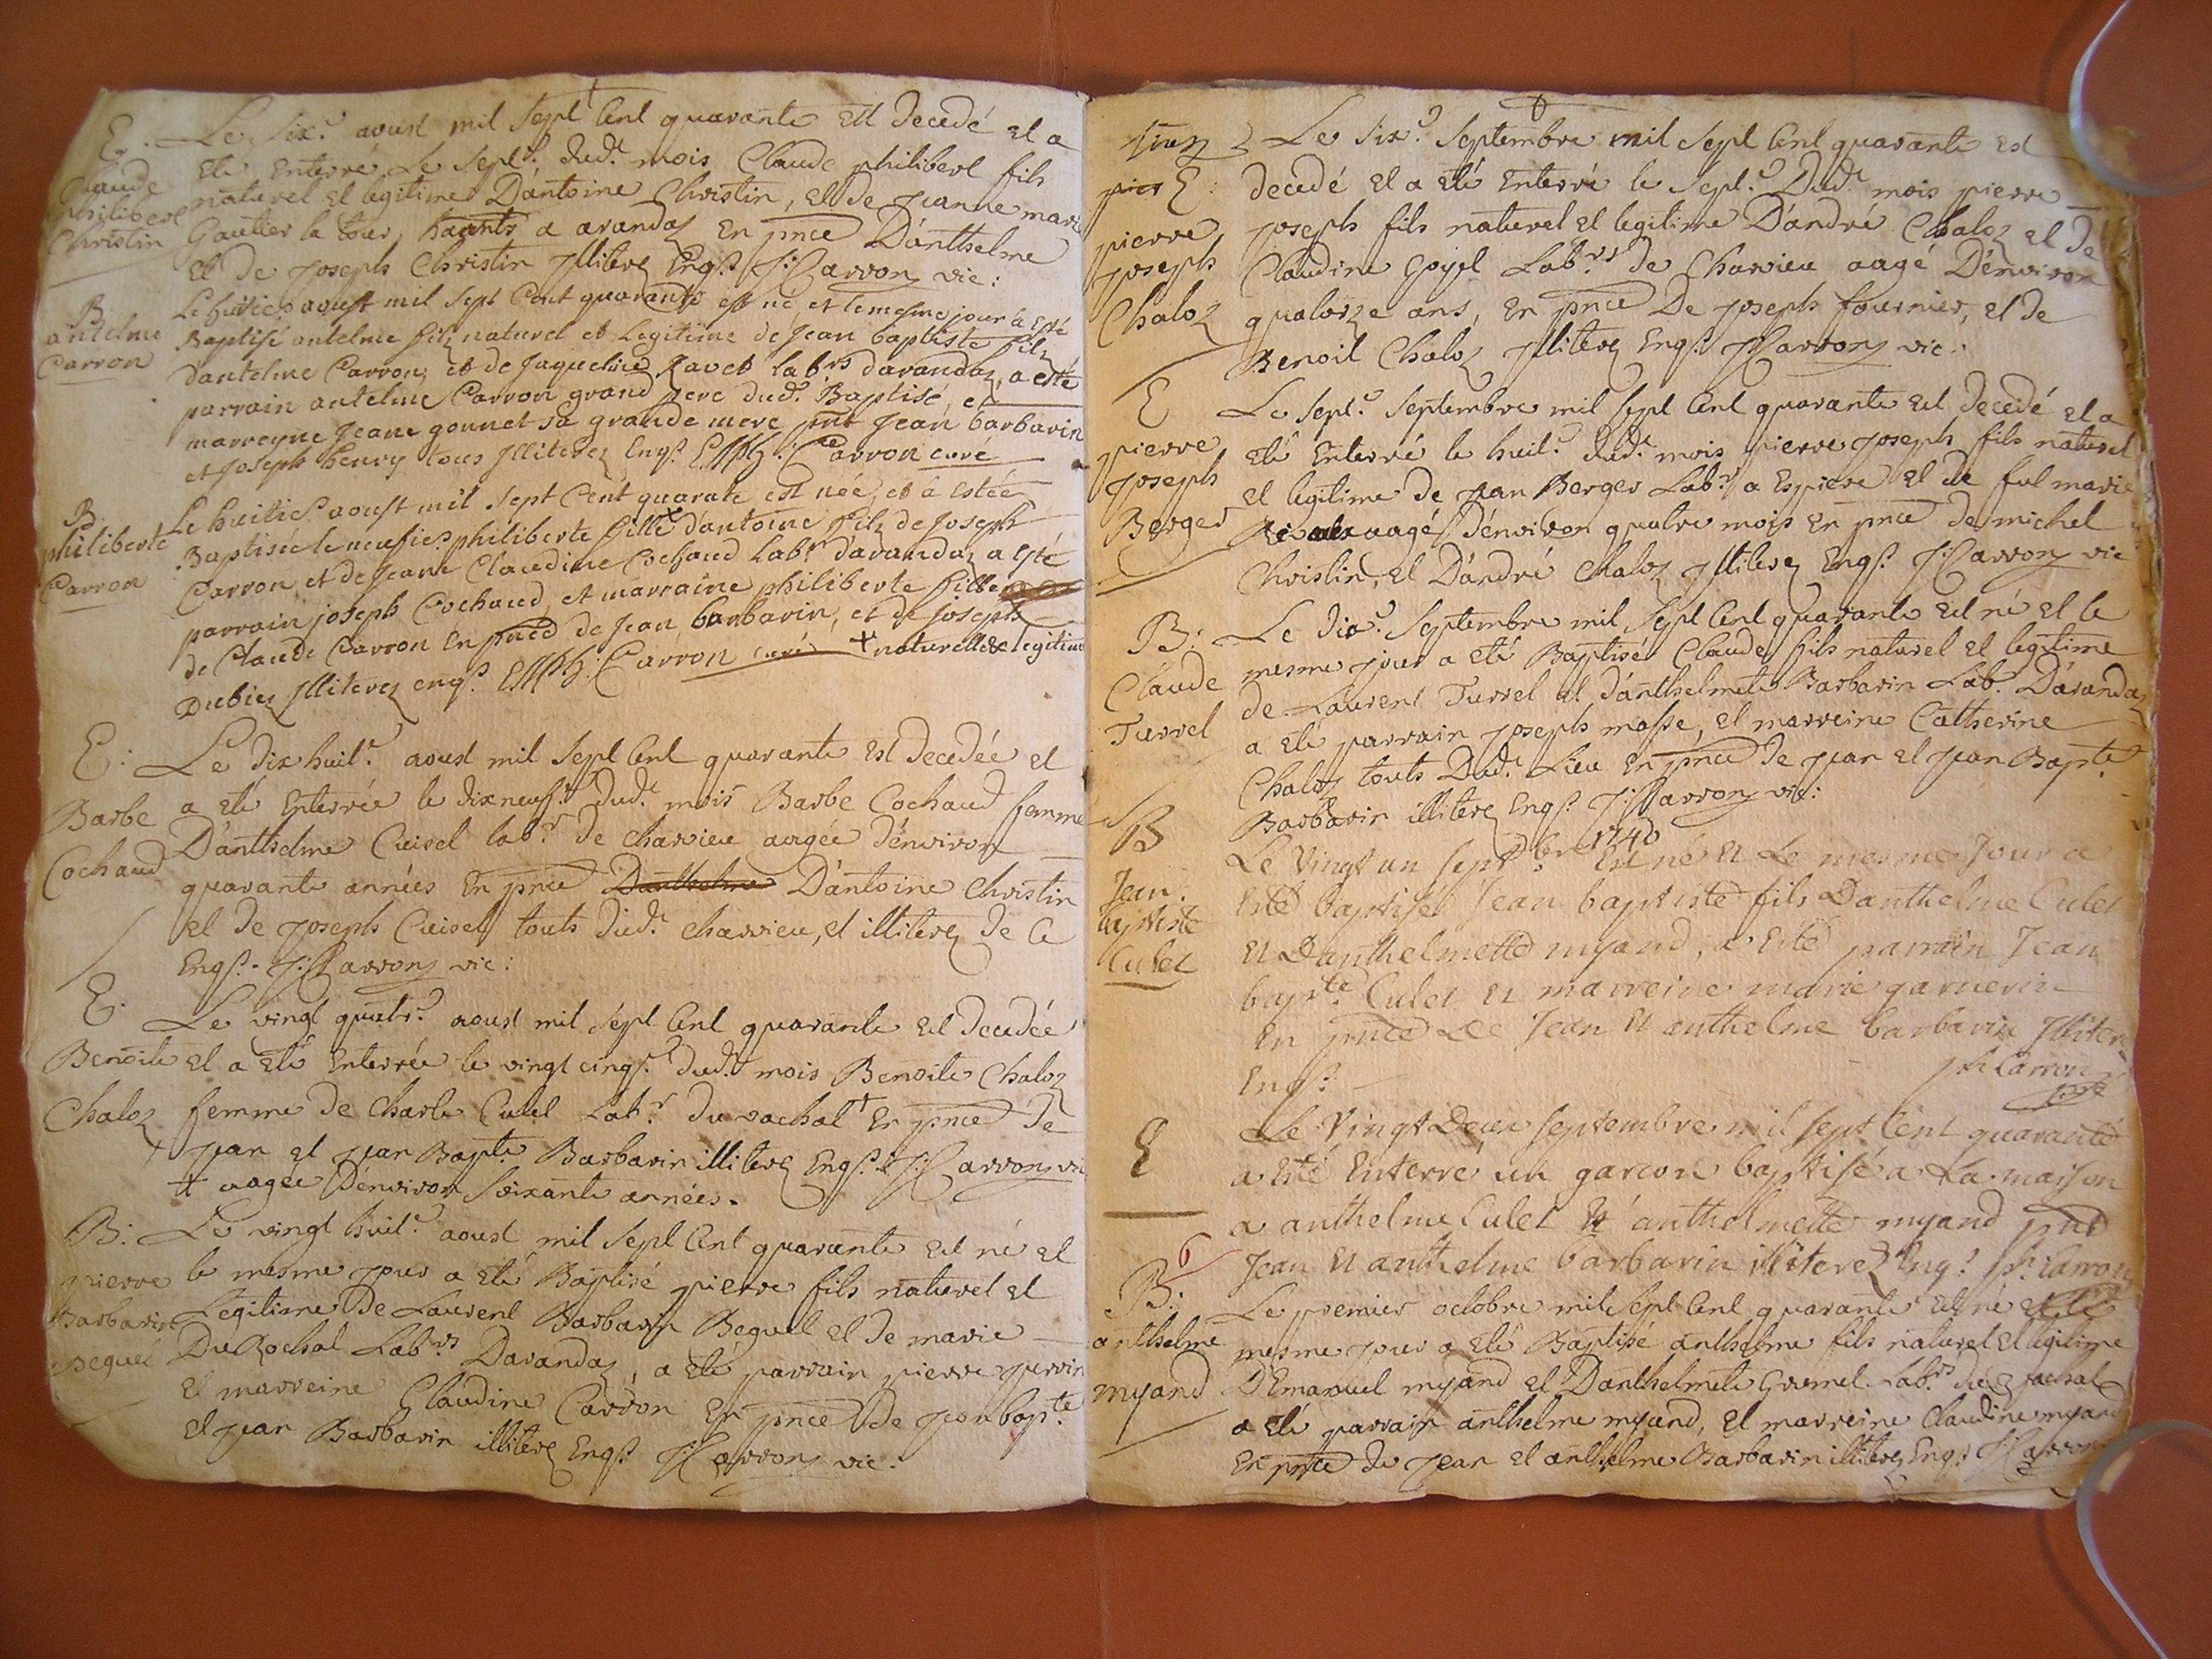 E. Le six.e aoust mil sept Cent quarante est decedé et a
Claude eté Enterré Le sept.e dud.t mois Claude philibert fils
philibert naturel et legitime D'antoine Christin, et de Jeanne marie
Christin Gautier la tour, haants a arandaz En pnce D'anthelme
et de Joseph Christin Illiterez Enq.s J: Carron vic:
B. Le huitie.e aoust mil sept Cent quarante est né et le mesme jour a esté
antelme Baptisé antelme filz naturel et Legitime de Jean baptiste filz
Carron dantelme Carron, et de Jaqueline Ravet lab.rs darandaz, a esté
parrain antelme Carron grand pere dud.t Baptisé, et
marreyne Jeane gonnet sa grande mere pnt Jean barbarin
et Joseph henry tous Illiterez Enq.s Carron curé
B. Le huitie.e aoust mil sept Cent quarate est née, et a estée
philiberte Baptisée le neufie.e philiberte fille + d'antoine filz de Joseph
Carron Carron et de Jeane Claudine Cochaud lab.rs d'arandaz a esté
parrain joseph Cochaud, et marraine philiberte fille
de Claude Carron En pnce de Jean barbarin, et de Joseph
Dubiez Illiterez enq.s Carron curé + naturelle & legitime
E: Le dix huit.e aoust mil sept Cent quarante est decedée et
Barbe a eté Enterrée le dixneuf.e dud.t mois Barbe Cochaud femme
Cochaud D'anthelme Cuisel lab.r de charvieu aagée d'environ
quarante années En pnce Danthelme D'antoine Christin
et de Joseph Cuisel touts dud.t charvieu, et illiterez de ce
Enq.s J: Carron vic:
E. Le vingt quatr.e aoust mil sept Cent quarante est decedée
Benoite et a eté Enterrée le vingt cinq.e dud.t mois Benoite Chaloz
Chaloz femme de charle Culet Lab.r du rachat + En pnce de
Jean et Jean Bapt.e Barbarin illiterez Enq.s J: Carron vic
+ aagée D'environ soixante années.
B: Le vingt huit.e aoust mil sept Cent quarante est né et
pierre le mesme jour a eté Baptisé pierre fils naturel et
Barbarin Legitime de Laurent Barbarin Beguet et de marie
Beguet Du Rochat Lab.rs Darandaz, a eté parrain pierre
et marreine Claudine Carron En pnce de Jean bapt.e
et Jean Barbarin illiterez Enq.s J: Carron vic:
Le six.e Septembre mil sept Cent quarante est
E: decedé et a eté Enterré le sept.e Dud.t mois pierre
pierre Joseph fils naturel et legitime D'andré Chaloz et de
Joseph Claudine Lab.rs de Charvieu aagé D'environ
Chaloz quatorze ans, En pnce De Joseph fournier, et de
Benoit Chaloz Illiterez Enq.s J: Carron vic:
E Le sept.e Septembre mil sept Cent quarante est decedé et a
pierre eté Enterré le huit.e dud.t mois pierre Joseph fils naturel
Joseph et legitime de Jean Berger Lab.r a Espierre et de fut marie
Berger aagé D'environ quatre mois En pnce de michel
Christin, et D'andré Chaloz Illiterez Enq.s J: Carron vic
B: Le dix.e Septembre mil sept Cent quarante est né et le
Claude mesme jour a eté Baptisé Claude fils naturel et legitime
Turrel de Laurent Turrel et d'anthelmete Barbarin Lab.rs D'arandaz
a eté parrain Joseph masse, et marreine Catherine
Chaloz touts Dud.t Lieu En pnce de Jean et Jean Bapt.e
Barbarin illiterez Enq.s J: Carron vic:
B Le Vingt un sept.bre 1740 Est né et Le mesme Jour a
Jean Esté baptisé Jean baptiste fils Danthelme Culet
baptiste et Danthelmette myand, a Esté parrain Jean
Culet bap.te Culet et marreine marie garnerin
En pnce De Jean et anthelme barbarin Illiterez
Enq.s J: Carron
E Le Vingt Deux septembre mil sept Cent quarante
a Esté Enterré un garcon baptisé a La maison
a anthelme Culet et anthelmette myand pnce
Jean et anthelme barbarin illiterez Enq.s J: Carron
6
B: Le premier octobre mil sept Cent quarante est né et le
anthelme mesme jour a eté Baptisé anthelme fils naturel et legitime
myand D'Emanuel myand et D'anthelmete Gromel Lab.rs du rachat
a eté parrain anthelme myand, et marreine Claudine myand
En pnce de Jean et anthelme Barbarin illiterez Enq.s J: Carron